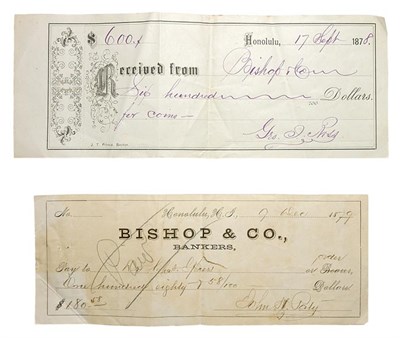 $ 600.
Honolulu, 17 Sept 1878.
Received from Bishop & Co
Six hundred Dollars.
100
for coins
Geo.
No. Honolulu, H.I. 7 Dec 1879
BISHOP & CO.,
BANKERS,
Pay to order
or Bearer,
One hundred eighty 58/100 Dollars
$ 180.58
John H.